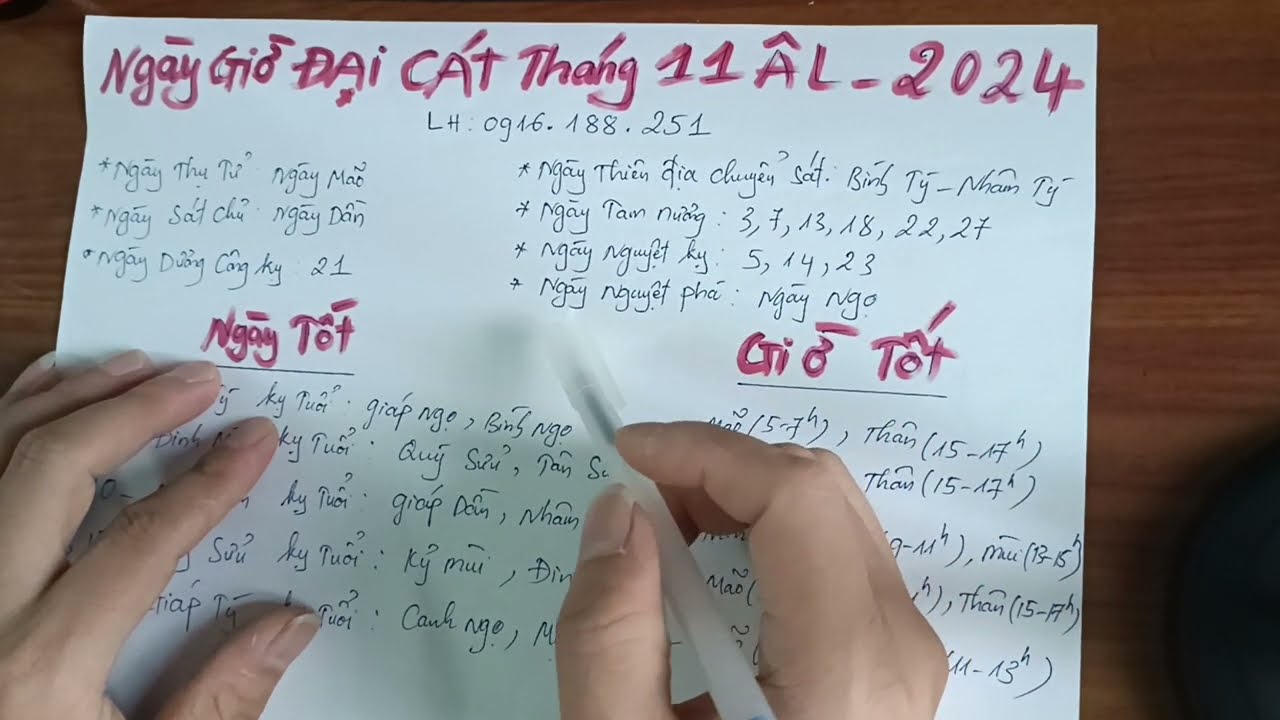 Ngày Giờ ĐẠi CÁT Tháng 11 ÂL - 2024
LH: 0916.188.251
* Ngày Thụ Tử: ngày Mão
* Ngày Sát chủ: ngày Dần
* Ngày Dương Công kỵ: 21
* Ngày Thiên địa chuyển sát: Bính Tý - Nhâm Tý
* Ngày Tam nương: 3, 7, 13, 18, 22, 27
* Ngày nguyệt kỵ: 5, 14, 23
* Ngày nguyệt phá: ngày ngọ
Ngày Tốt
kỵ Tuổi: giáp ngọ, Bính ngọ
Đinh kỵ Tuổi: Quý Sửu, Tân
kỵ Tuổi: giáp Dần, Nhâm
Sửu kỵ Tuổi: Kỷ mùi,
Giáp Tý Tuổi: Canh ngọ,
Giờ Tốt
Mão (5-7h), Thân (15-17h)
Thân (15-17h)
9-11h), mùi (13-15h)
Mão ( h), Thân (15-17h)
(11-13h)